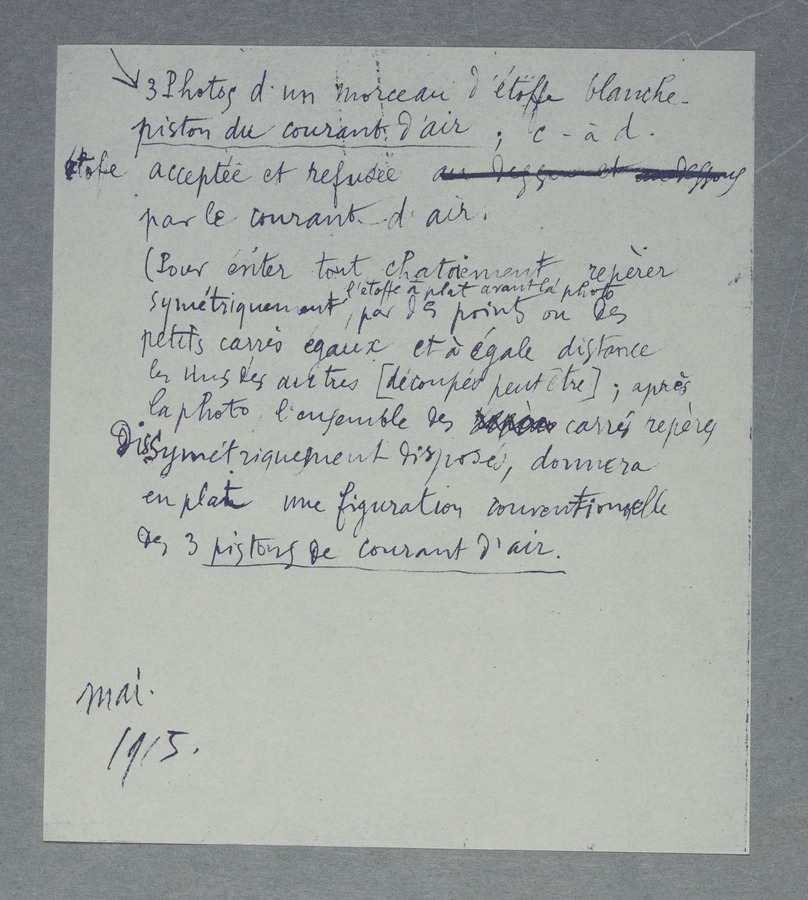 3 Photos d'un morceau d'étoffe blanche -
piston du courant d'air ; c - à d.
étofe acceptée et refusée au dessus et au dessous
par le courant d'air.
(Pour éviter tout chatoiement repèrer
l'étoffe à plat avant la photo
symétriquement, par des points ou des
petits carrés égaux et à égale distance
les uns des autres [découpés peut être] ; après
la photo, l'ensemble des carrés repères
Dissymétriquement disposés, donnera
en plat une figuration conventionnelle
des 3 pistons de courant d'air.
mai.
1915.